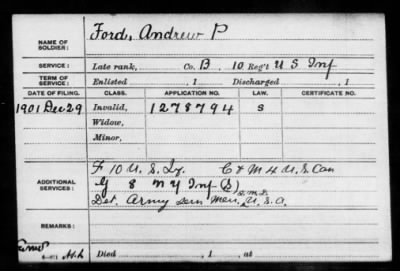 NAME OF SOLDIER: Ford, Andrew P
SERVICE: Late rank, Co. B, 10 Reg't U S Inf
TERM OF SERVICE: Enlisted , 1 Discharged , 1
DATE OF FILING. CLASS. APPLICATION NO. LAW. CERTIFICATE NO.
1901 Dec 29 Invalid, 1278794 S
Widow,
Minor,
ADDITIONAL SERVICES: F 10 U. S. Iy. C & M 4 U. S. Cav
G 8 N Y Inf (S)
Det. Army Men, U. S. A.
REMARKS:
Died , 1 , at